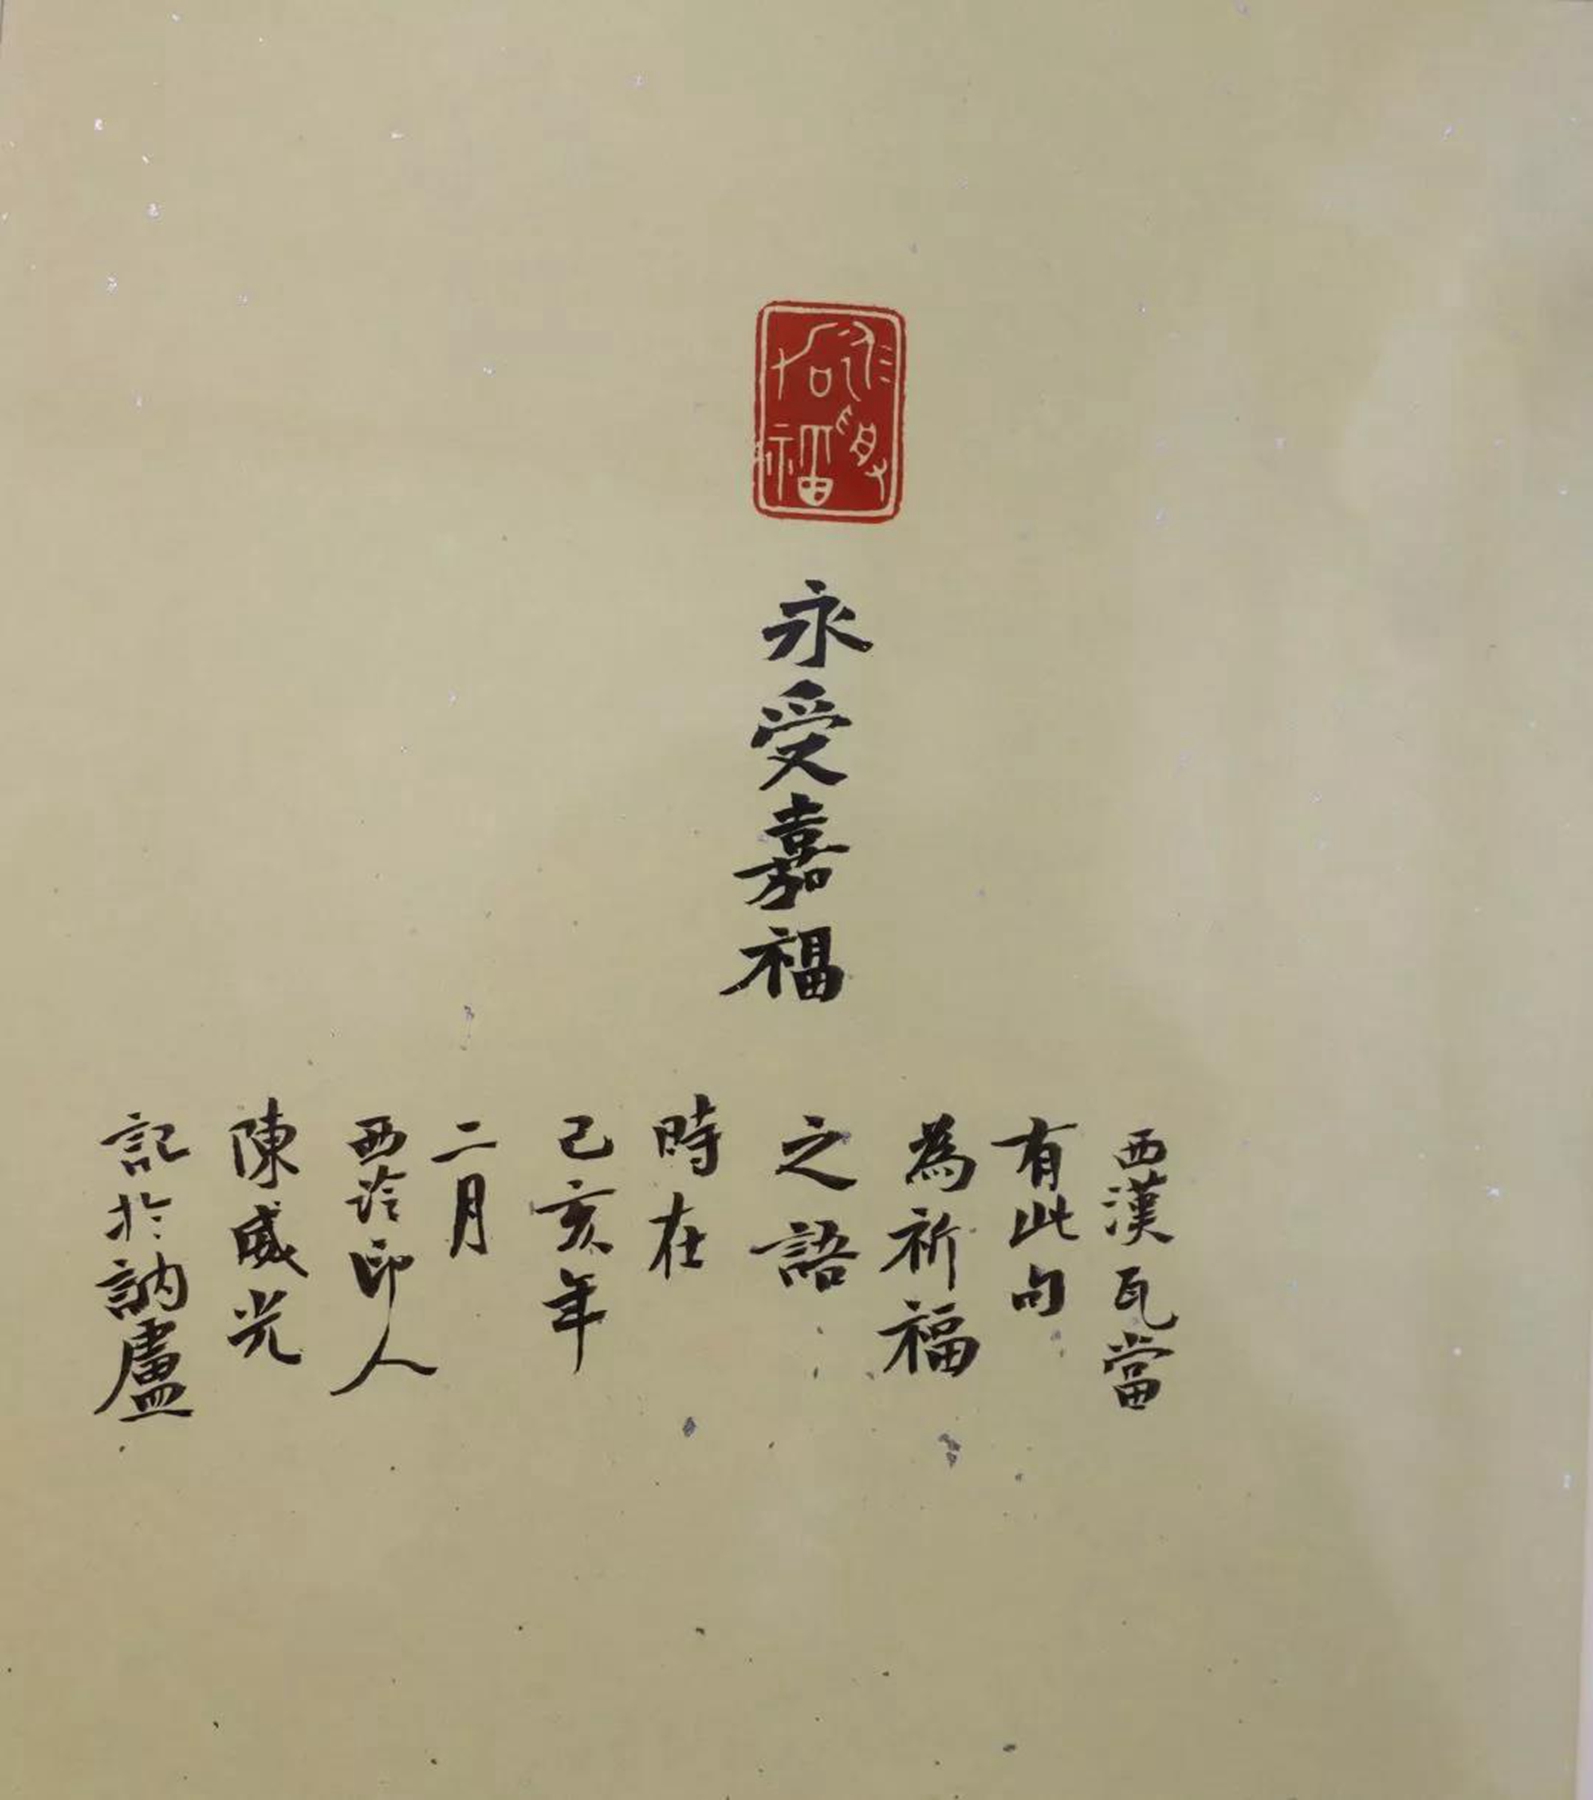 永受嘉福
西漢瓦當
有此句
為祈福
之語
時在
己亥年
二月
西泠印人
陳威光
記於訥盧